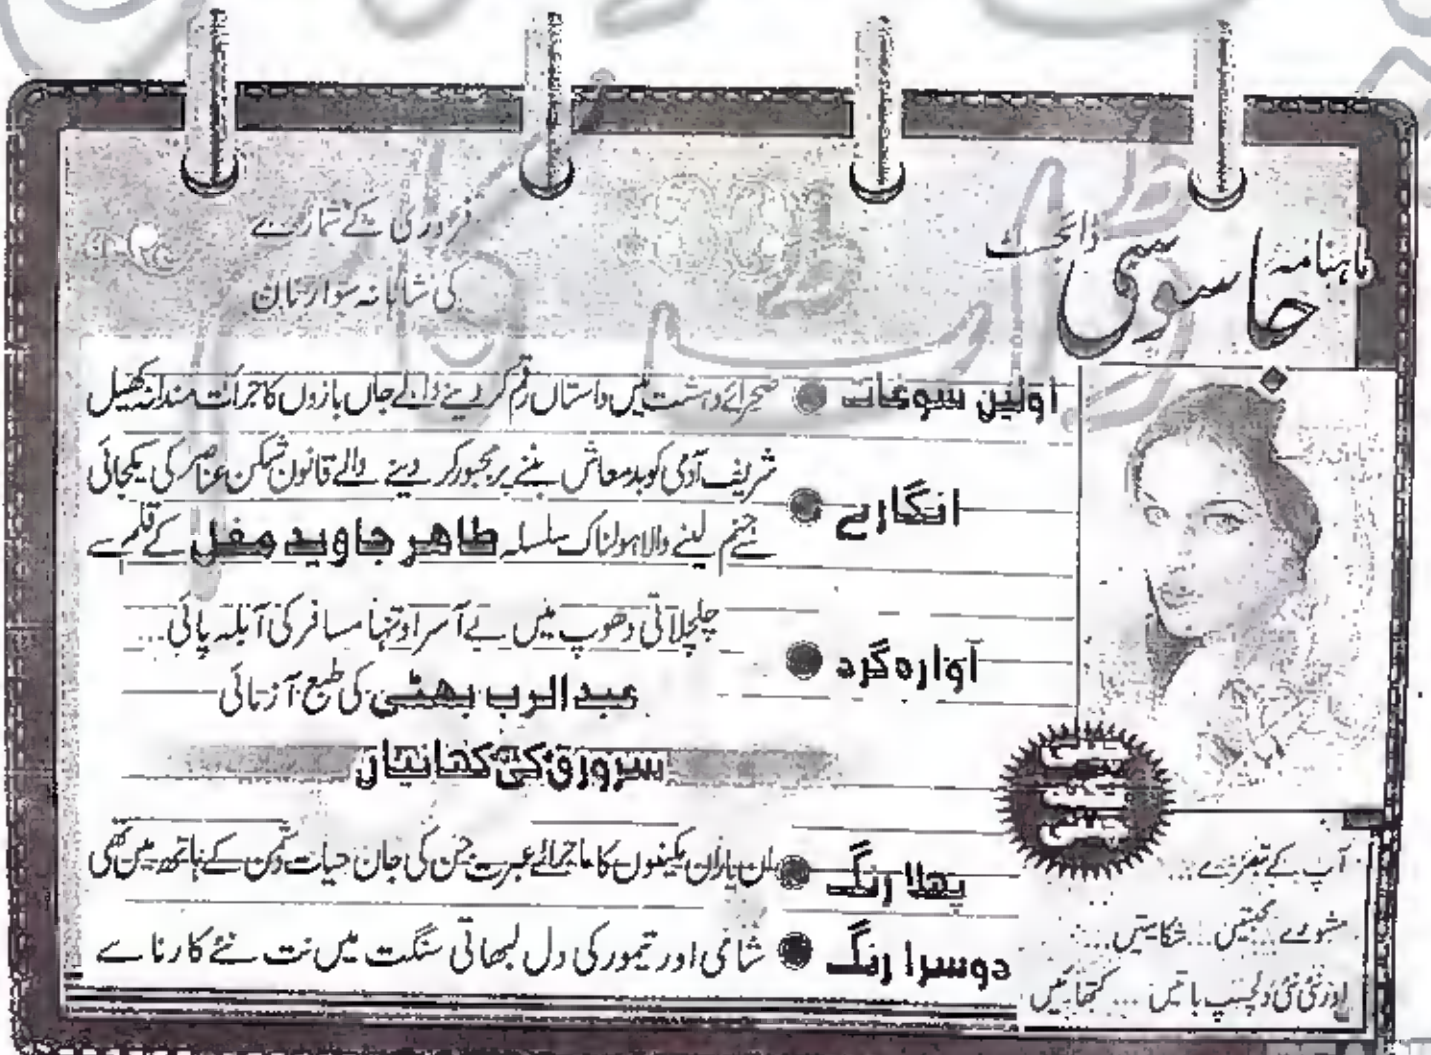 ماہنامہ جاسوسی ڈائجسٹ
فروری کے شمارے
کی شاہانہ سوار تان
اولین سوغات ● صحرائے دہشت میں داستاں رقم کر دینے والے جاں بازوں کا جرأت مندانہ کھیل
انگارے ● شریف آدمی کو بدمعاش بننے پر مجبور کر دینے والے قانون شکن عناصر کی یکجائی
سے جنم لینے والا ہولناک سلسلہ طاہر جاوید مغل کے قلم سے
آوارہ گرد ● چلچلاتی دھوپ میں بے آسرا و تنہا مسافر کی آبلہ پائی...
عبدالرب بھٹی کی طبع آزمائی
سرورق کی کہانیاں
پہلا رنگ ● ان یاران کا ماجرائے عبرت جن کی جان حیات دشمن کے ہاتھ میں تھی
دوسرا رنگ ● شامی اور تیمور کی دل لبھاتی سنگت میں نت نئے کارنامے
چینی
نکتہ
چینی
آپ کے تبصرے...
مشورے... محبتیں... شکایتیں...
اور نئی نئی دلچسپ باتیں... کتھائیں